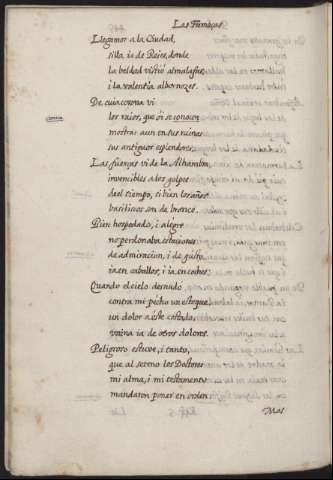 Las Firmezas
Llegamos a la Ciudad,
silla ia de Reies, donde
la beldad vistió almalafas,
i la valentia albornozes.
De cuia corona vi
los raios, que oi se conocen
mostrar aun en sus ruinas
sus antiguos esplendores.
Las fuerças vi de la Alhambra
invencibles a los golpes
del tiempo, si bien los años
basiliscos son de bronce.
Bien hospedado, i alegre
no perdonaba estaciones
de admiracion, i de gusto
ia en caballos, i ia en coches.
Quando el cielo desnudó
contra mi pecho un estoque
un dolor a este costado,
vaina ia de otros dolores.
Peligroso estuve, i tanto,
que al sereno los Doctores
mi alma, i mi testamento
mandaron poner en orden
Mas